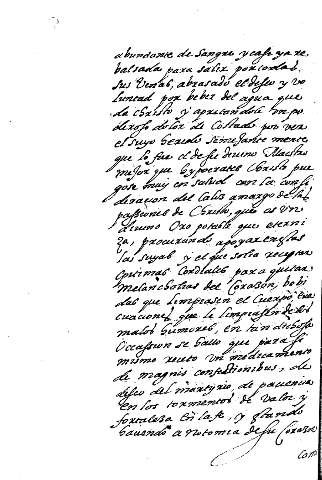 abundante de sangre, y casi ya re
balsada para salir por todas
sus Venas, abrasado el deseo y vo
luntad por beber del agua que
da Christo y apretandole un po
deroso dolor de Costado por ver
el suyo herido semejante merce
que lo fue el de su divino Maestro
mejor que Hypocrates Christo pue
gose muy en salud con la consi
deracion del Caliz amargo de la
passiones de Christo, que es Un
divino Oro potable que eterni
za, procurando apoyar en ellas
las suyas y el que solia recetar
optimas Cordiales para quitar
melancholias del Corazon, bebi
das que limpiasen el Cuerpo, Eva
cuaciones que le limpiasen de los
malos humores, en tan dichosa
Occassion se hallo que para si
mismo receto un medicamento
de magnis confectionibus, de
deseo del martyrio, de paciencia
en los tormentos de valor y
fortaleza en la fe, y estando
haciendo anotomia de su Corazon
Com